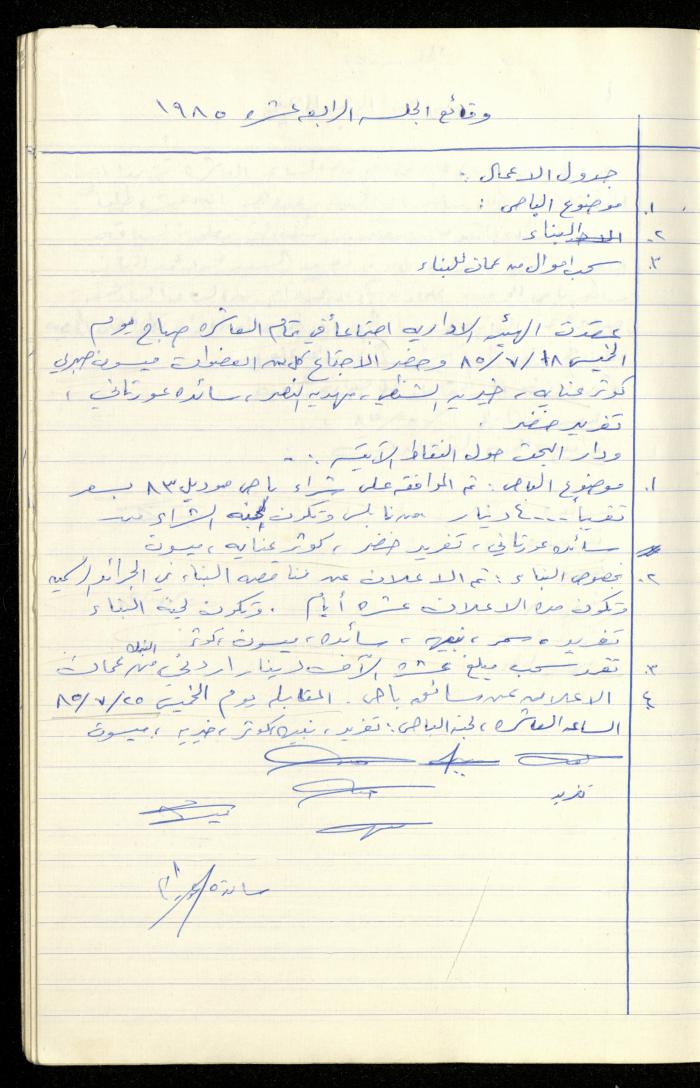 وقائع الجلسه الرابعه عشره ١٩٨٥
جدول الاعمال :
١. موضوع الباص :
٢. البناء
٣. سحب اموال من عمان للبناء
عقدت الهيئه الاداريه اجتماعاً في تمام العاشره صباح يوم
الخميس ١٨/٧/٨٥ وحضر الاجتماع كل من العضوات ميسون صبري
كوثر عنايه ، خيريه الشنطي ، مهديه النصر ، سائده عورتاني ،
تغريد خضر .
ودار البحث حول النقاط الآتيه : -
١. موضوع الباص : تم الموافقه على شراء باص موديل ٨٣ بسعر
تقريباً ٤٠٠٠ دينار من نابلس وتكون لجنه الشراء من
سائده عورتاني ، تغريد خضر ، كوثر عنايه ، ميسون
٢. بخصوص البناء : تم الاعلان عن مناقصه البناء في الجرائد الرسميه
وتكون مده الاعلان عشره أيام . وتكون لجنة البناء
تغريد ، سمر ، نبيهه ، سائده ، ميسون ، كوثر
٣. تقرر سحب مبلغ عشره الآف دينار اردني من البنك عمان
٤. الاعلان عن سائق باص . المقابله يوم الخميس ٢٥/٧/٨٥
الساعه العاشره ، لجنة الباص : تغريد ، نبيهه ، كوثر ، خيريه ، ميسون
تغريد
سائدة